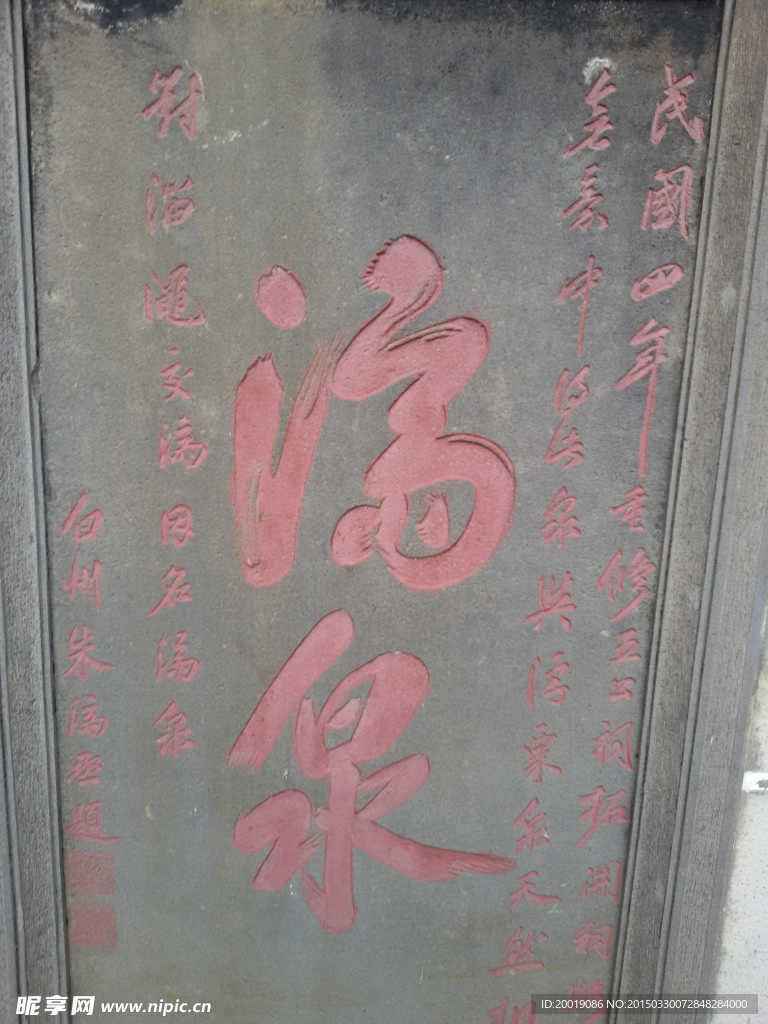 民國四年重修五公祠拓開祠
中得此泉與浮粟泉天然相
泉
對淄澠交 因名 泉
白州朱 題
昵享网 www.nipic.cn
ID:20019086 NO:20150330072848284000